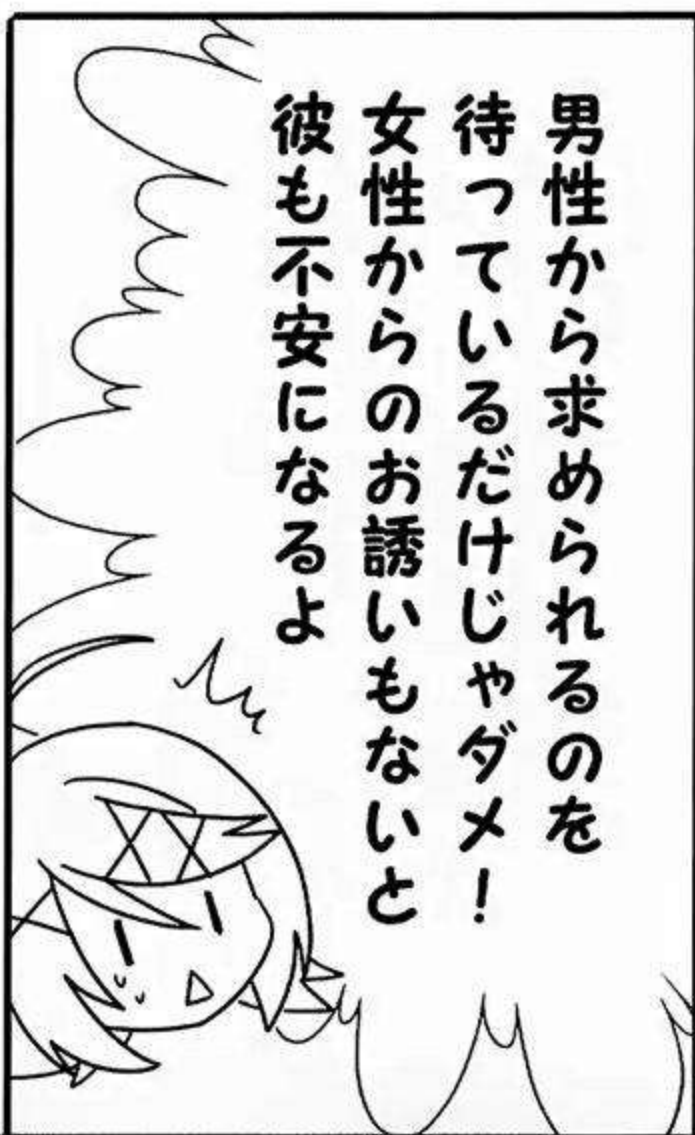 男性から求められるのを
待っているだけじゃダメ！
女性からのお誘いもないと
彼も不安になるよ